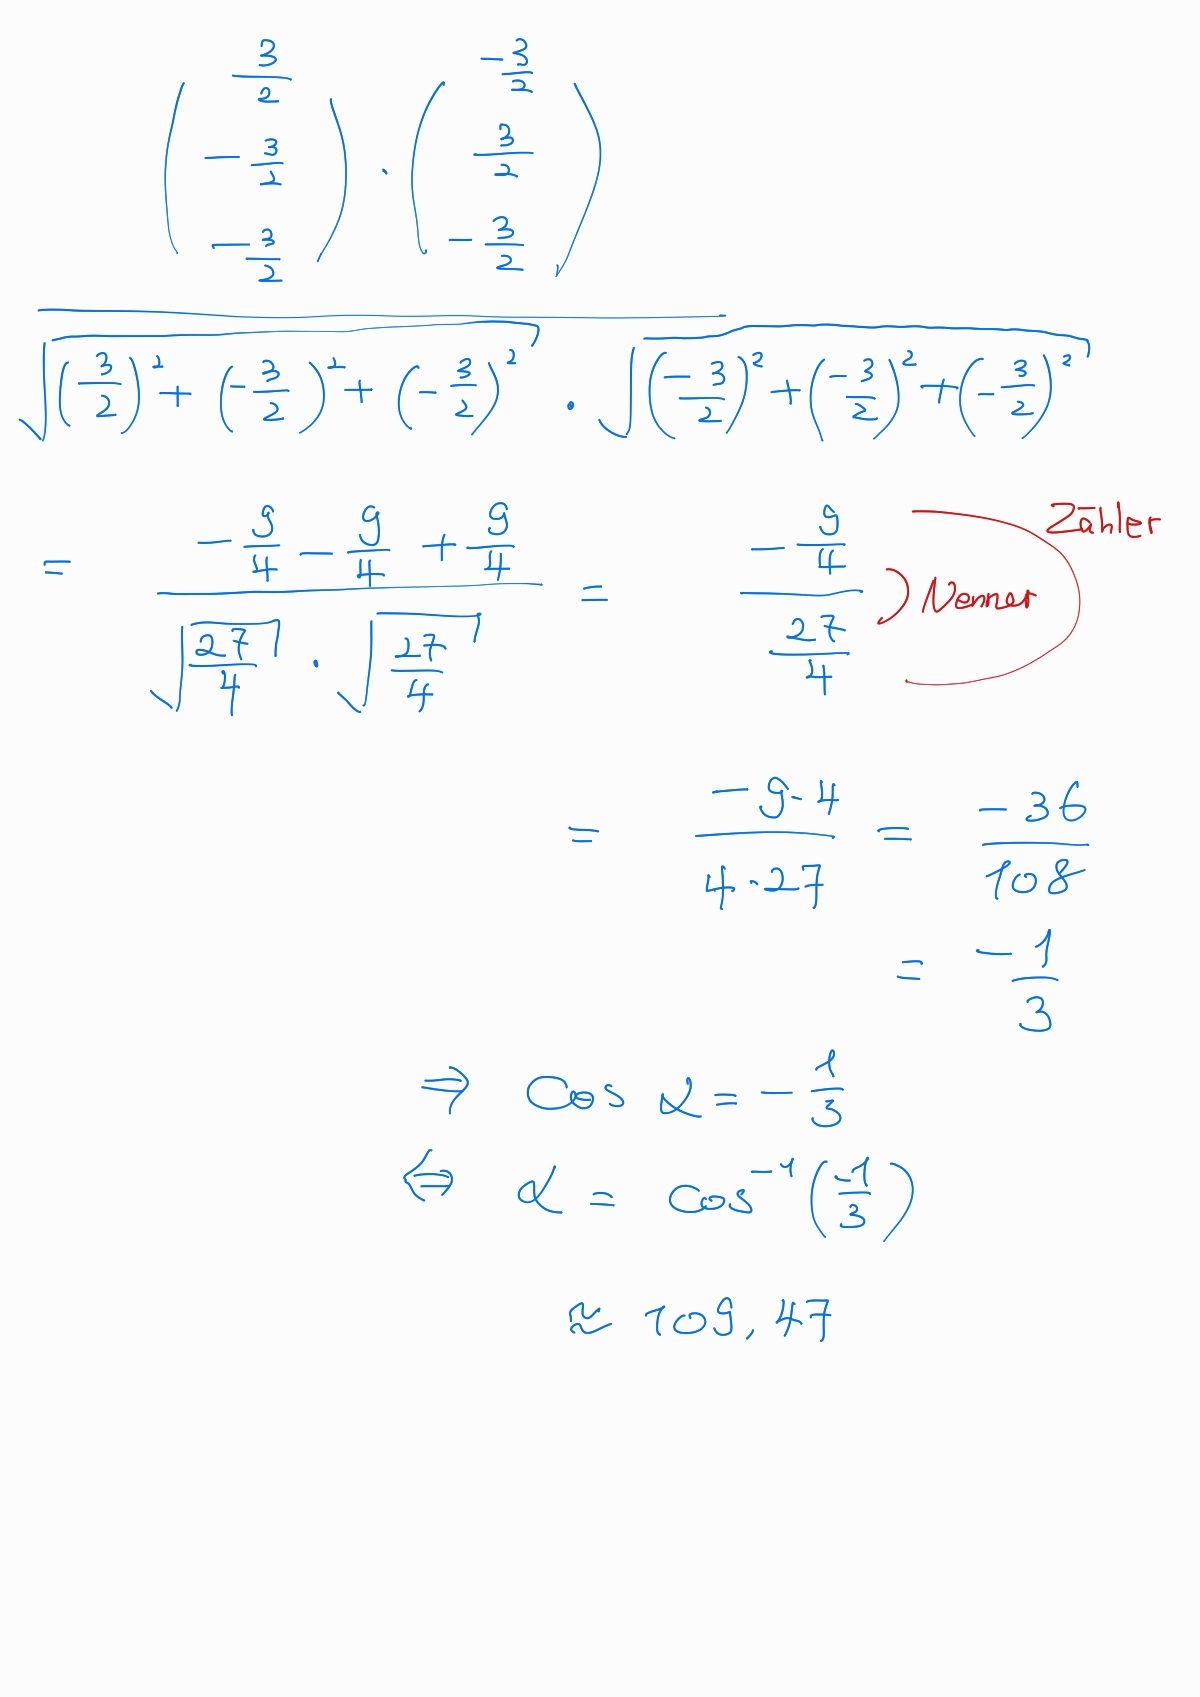 (3/2, -3/2, -3/2) · (-3/2, 3/2, -3/2)
√((3/2)² + (-3/2)² + (-3/2)²) · √((-3/2)² + (-3/2)² + (-3/2)²)
= (-9/4 - 9/4 + 9/4) / (√(27/4) · √(27/4)) = (-9/4) / (27/4)
Zähler
Nenner
= (-9·4) / (4·27) = -36/108
= -1/3
⇒ cos α = -1/3
⇔ α = cos⁻¹(-1/3)
≈ 109,47